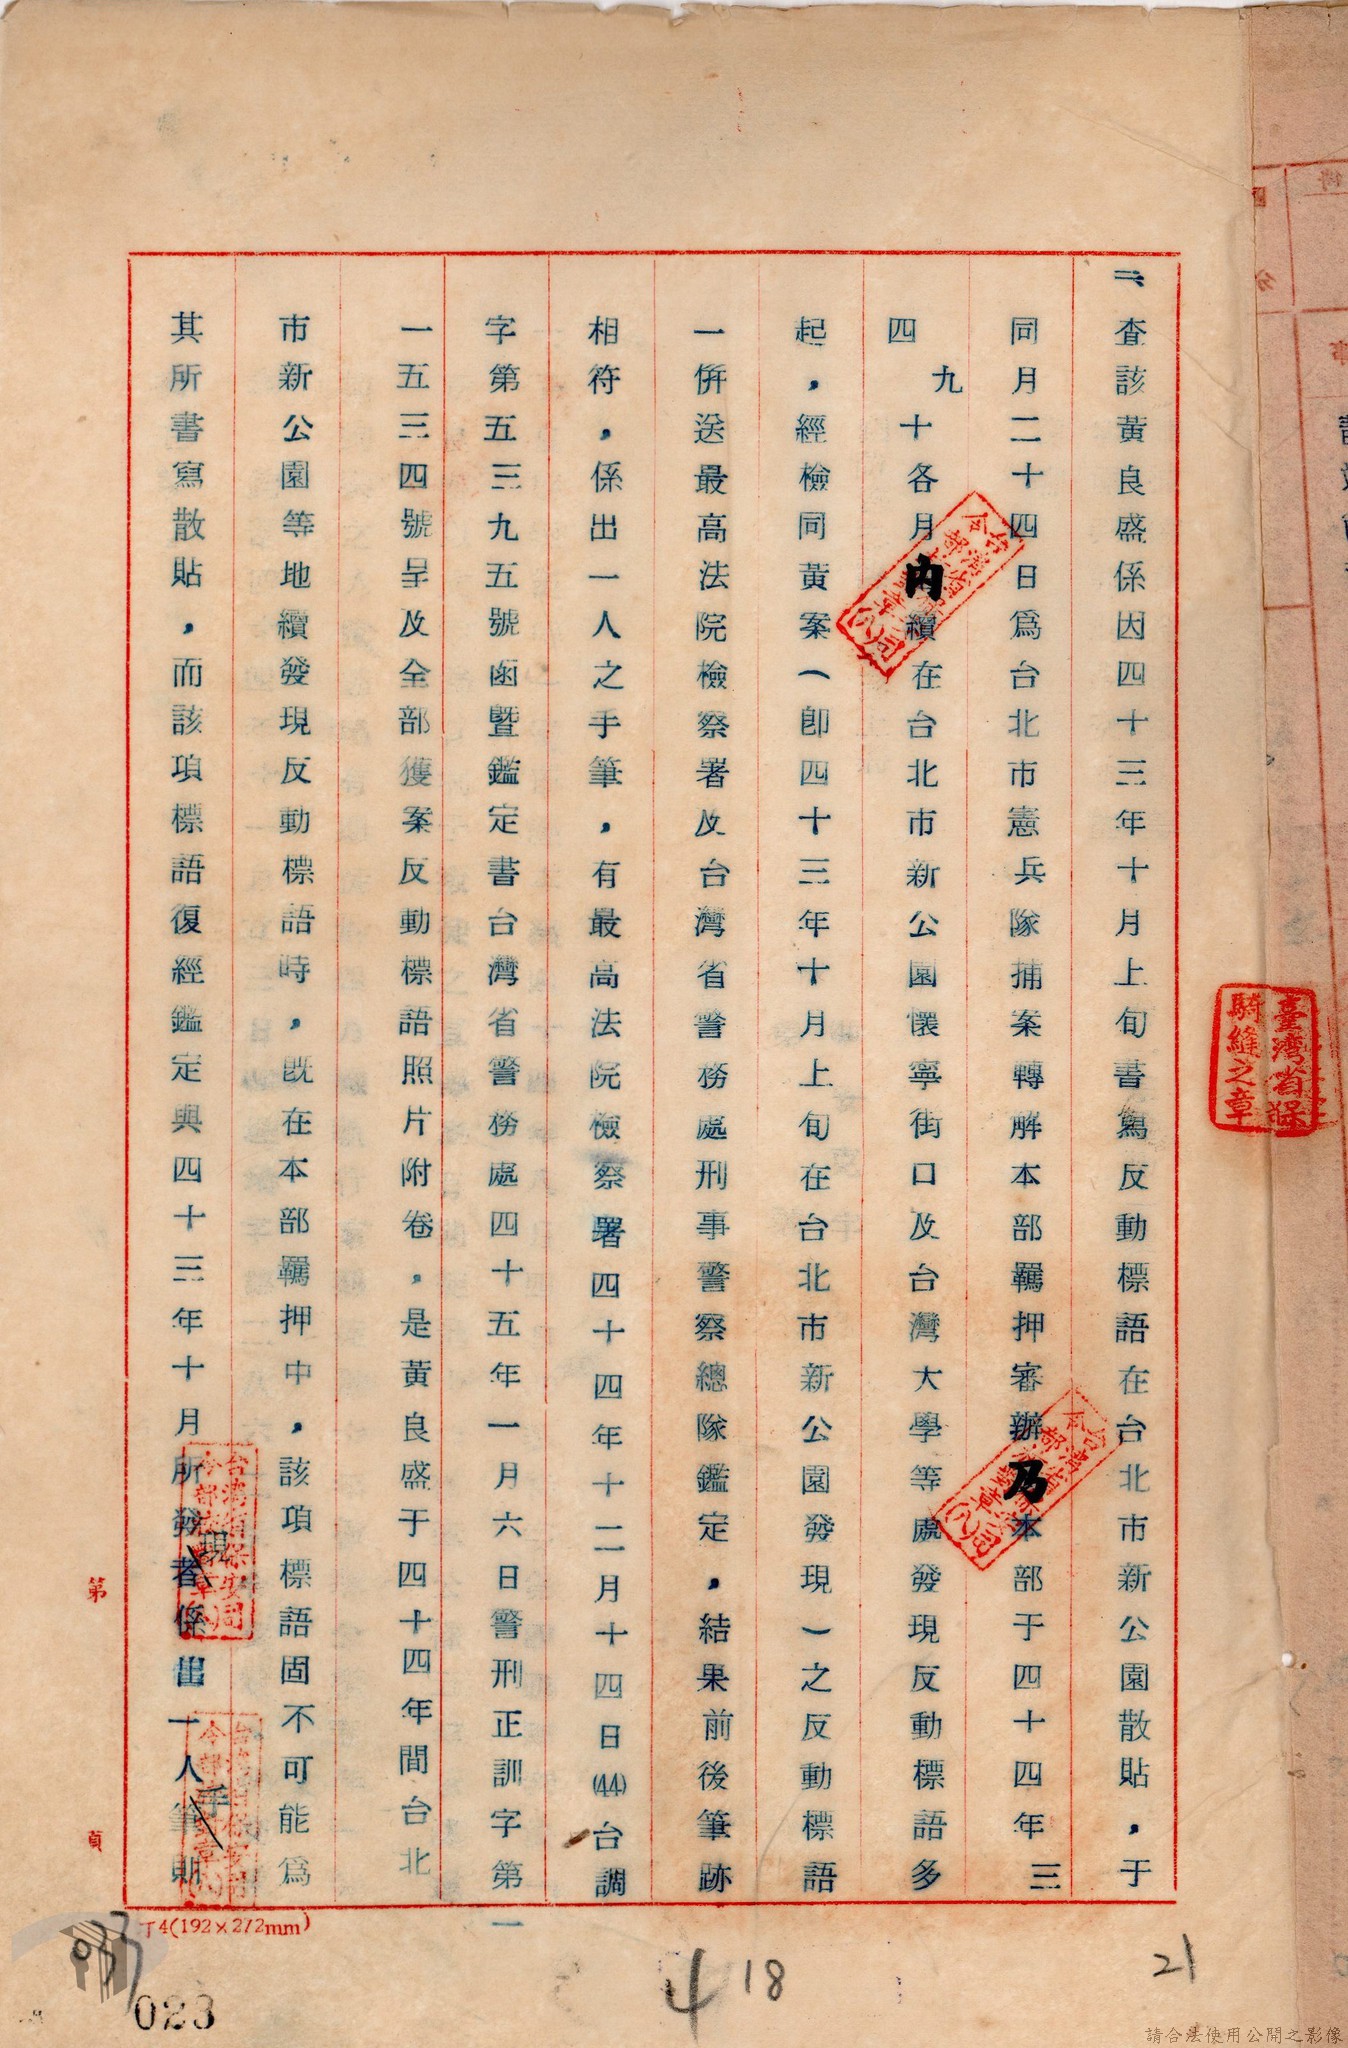 二、查該黃良盛係因四十三年十月上旬書寫反動標語在台北市新公園散貼，于
同月二十四日為台北市憲兵隊捕案轉解本部羈押審辦乃本部于四十四年三
四九十各月內續在台北市新公園懷寧街口及台灣大學等處發現反動標語多
起，經檢同黃案（即四十三年十月上旬在台北市新公園發現）之反動標語
一併送最高法院檢察署及台灣省警務處刑事警察總隊鑑定，結果前後筆跡
相符，係出一人之手筆，有最高法院檢察署四十四年十二月十四日(44)台調
字第五三九五號函暨鑑定書台灣省警務處四十五年一月六日警刑正訓字第一
一五三四號呈及全部獲案反動標語照片附卷，是黃良盛于四十四年間台北
市新公園等地續發現反動標語時，既在本部羈押中，該項標語固不可能為
其所書寫散貼，而該項標語復經鑑定與四十三年十月所發現者係出一人手筆則
臺灣省保
騎縫之章
第
頁
T4(192×272mm)
023
18
21
請合法使用公開之影像